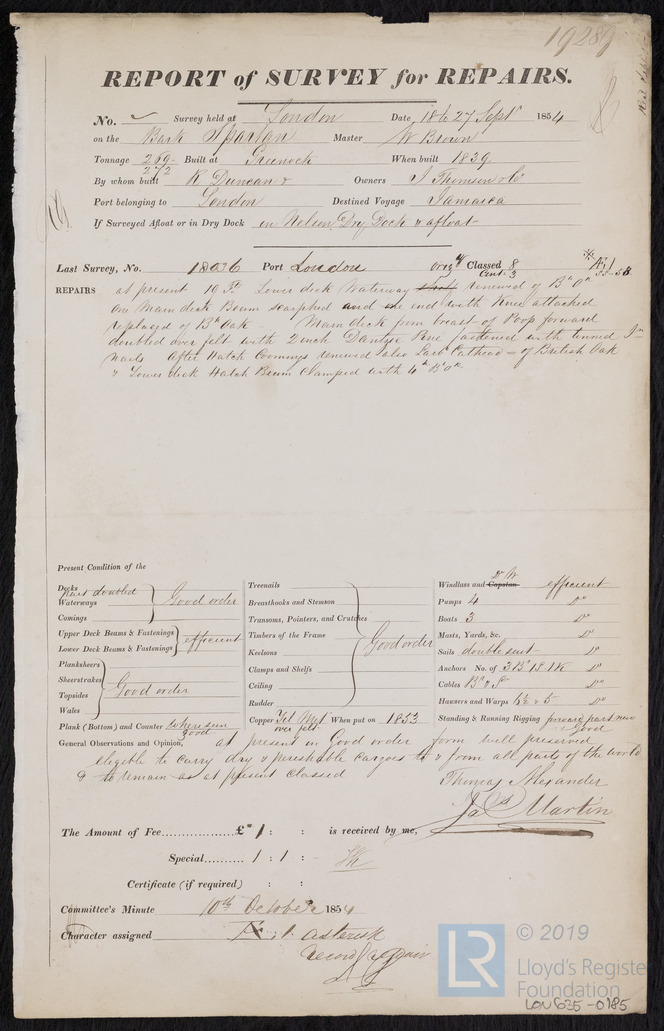 19289
REPORT of SURVEY for REPAIRS.
No. Survey held at London Date, 18 & 27 Sept 1854
on the Bark Spartan Master W Brown
Tonnage 269 272 Built at Greenock When built 1839
By whom built R Duncan & Owners J Thomson & Co
Port belonging to London Destined Voyage Jamaica
If Surveyed Afloat or in Dry Dock in Nelson Dry Dock & afloat
Last Survey, No. 18036 Port London Classed 8 Cont. 3
REPAIRS at present 10 Ft Lower deck Waterway renewed of
One Main deck Beam scarphed and one end with Knee attached
replaced of Oak Main deck from breast of Poop forward
doubled over felt with 2 inch Dantzic Pine fastened with tinned
nails After Hatch Coomings renewed also Larbd Cathead of British Oak
& Lower deck Hatch Beam clamped with
Present Condition of the
Decks part doubled
Waterways
Comings
Good order
Upper Deck Beams & Fastenings
Lower Deck Beams & Fastenings
efficient
Planksheers
Sheerstrakes
Topsides
Wales
Good order
Plank (Bottom) and Counter where seen good
Treenails
Breasthooks and Stemson
Transoms, Pointers, and Crutches
Timbers of the Frame
Keelsons
Clamps and Shelfs
Ceiling
Rudder
Good order
Copper Yel Met over felt When put on 1853
Windlass and Capstan efficient
Pumps 4 Do
Boats 3 Do
Masts, Yards, &c. Do
Sails double suit Do
Anchors No. of 3 B 1 S 1 K Do
Cables Do
Hausers and Warps Do
Standing & Running Rigging part new Good
General Observations and Opinion, at present in Good order form well preserved
eligible to carry dry & perishable cargoes to & from all parts of the world
& to remain as at present classed
Thomas Alexander
Jas Martin
The Amount of Fee £ 1 : : is received by me,
Special 1 : 1 : -
Certificate (if required) : :
Committee's Minute 10th October 1854
Character assigned A 1. asterisk
record repair
LR © 2019
Lloyd's Register
Foundation
LON635-0185